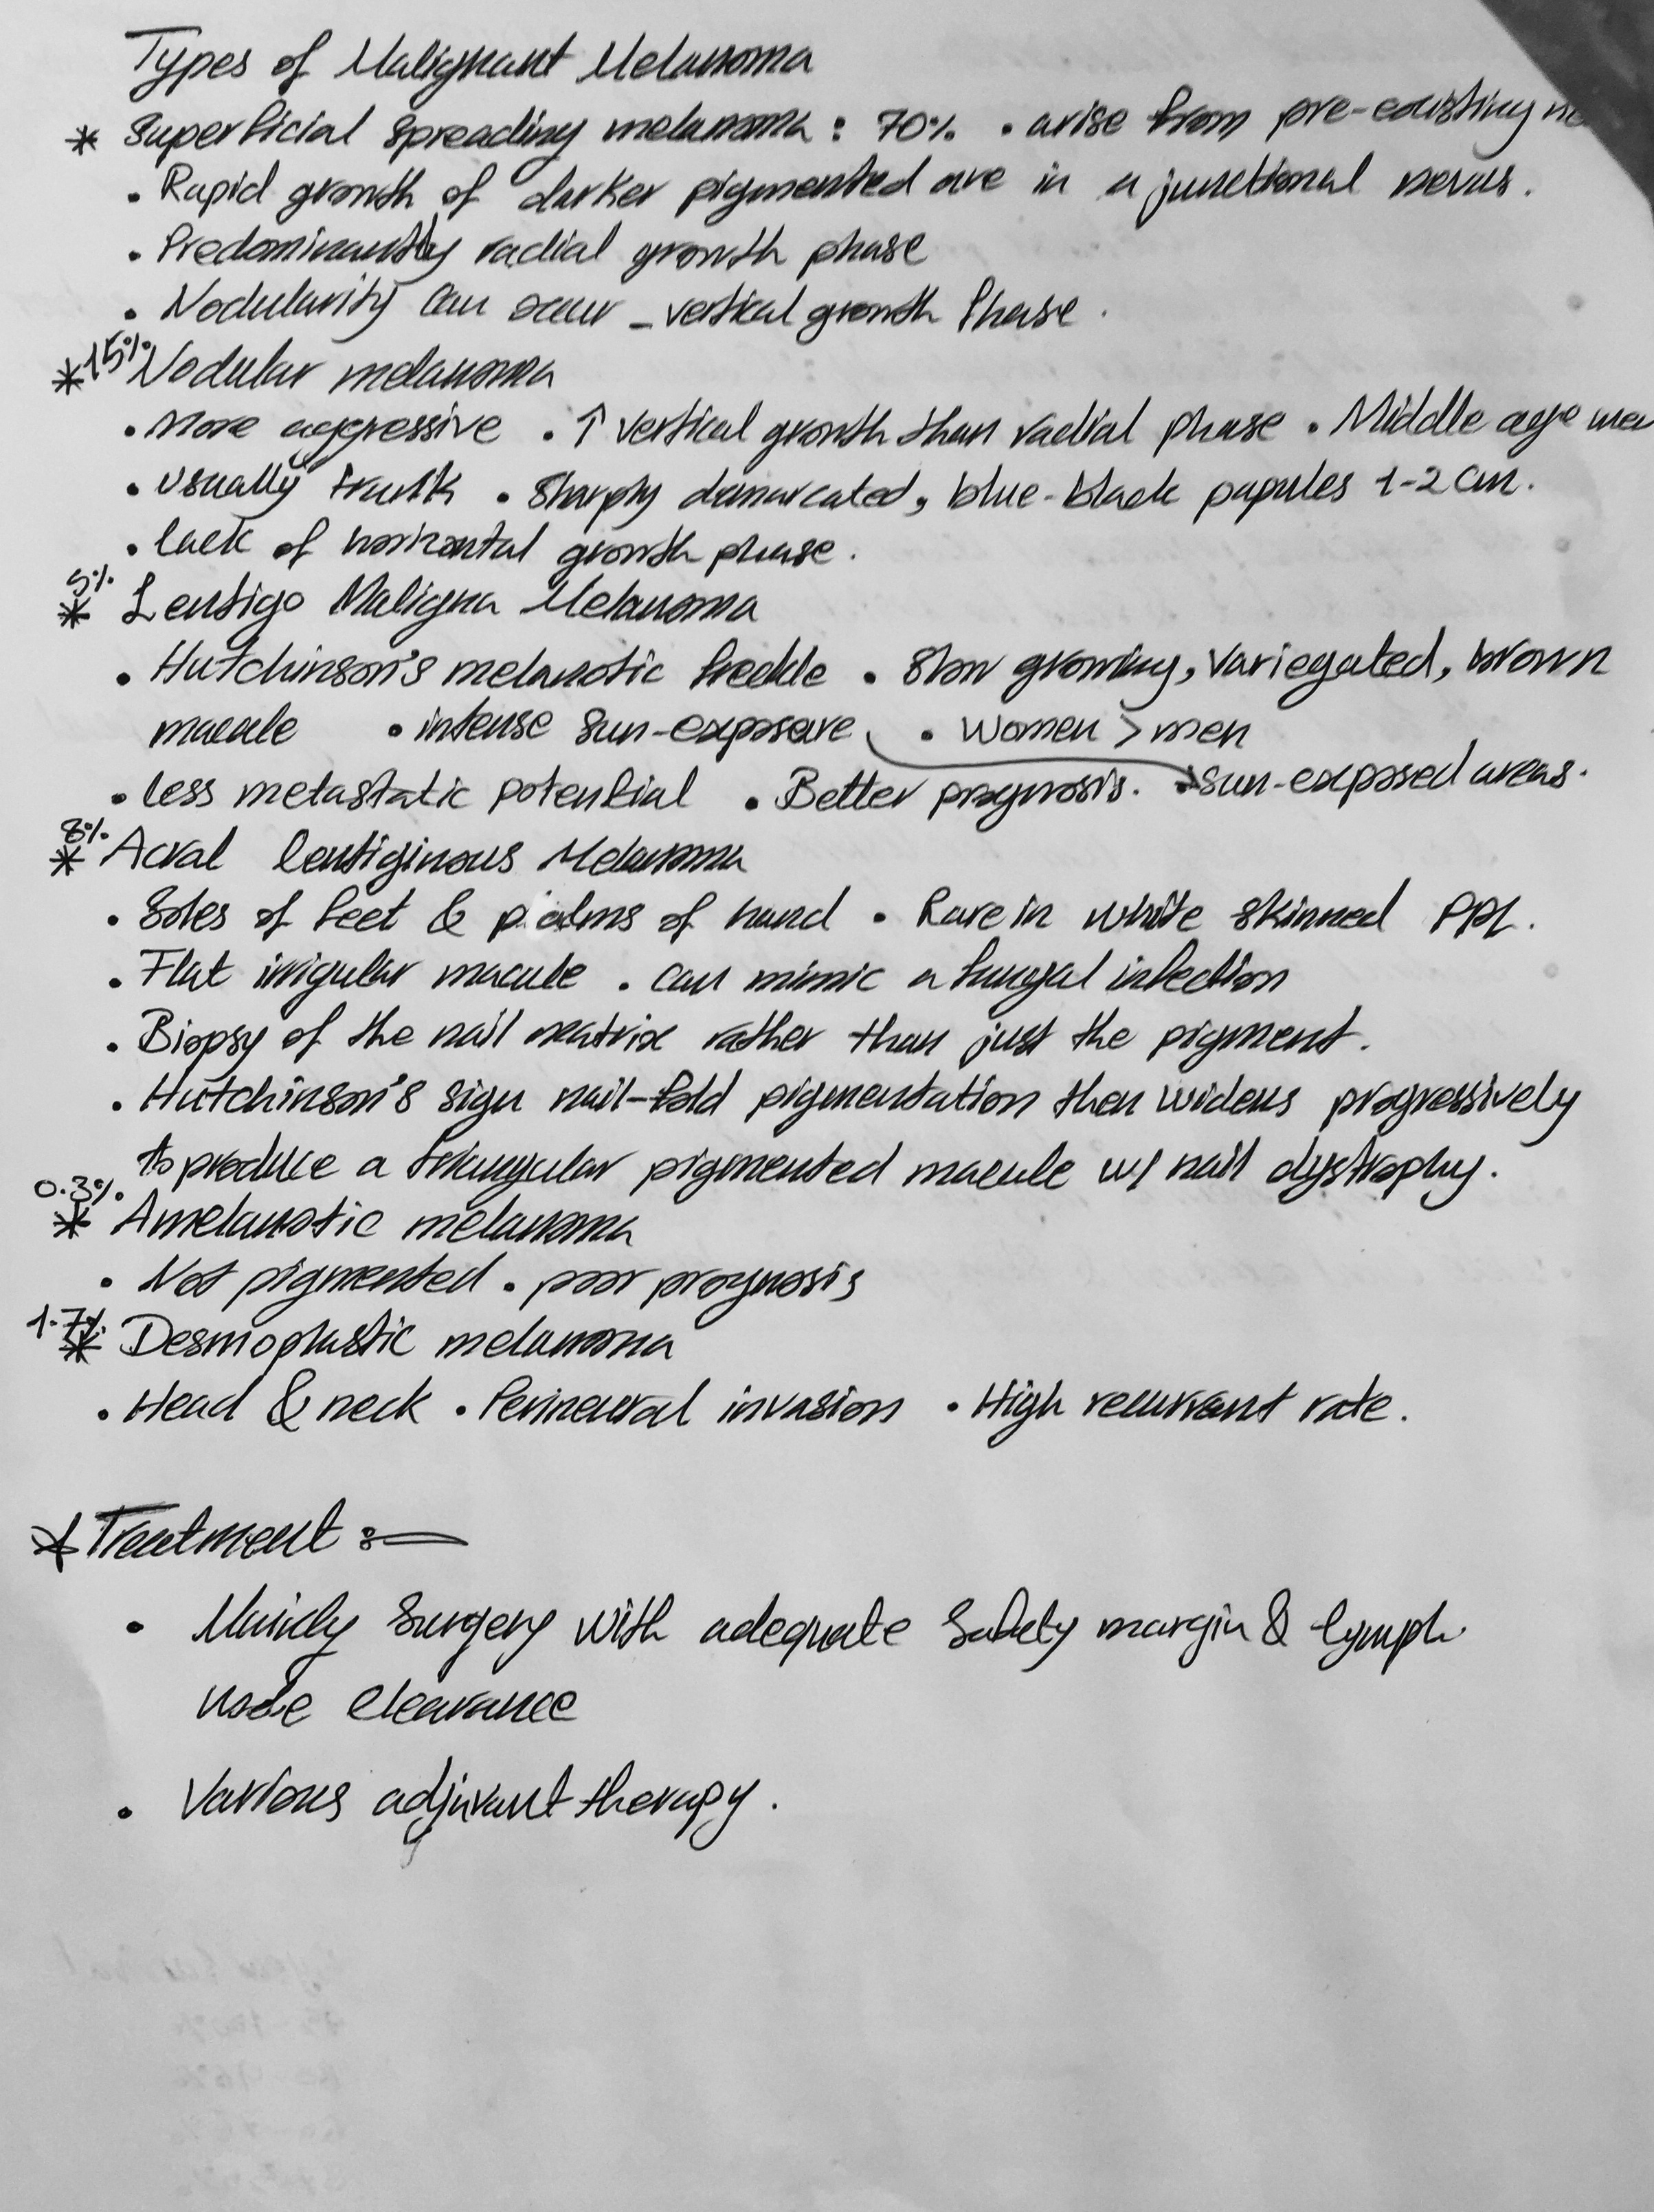 Types of Malignant Melanoma
* Superficial spreading melanoma : 70% • arise from pre-existing ne
• Rapid growth of darker pigmented are in a junctional nevus.
• Predominantly radial growth phase
• Nodularity can occur - vertical growth Phase.
* 15% Nodular melanoma
• More aggressive • ↑ vertical growth than radial phase • Middle age men
• usually trunk • Sharply demarcated, blue-black papules 1-2 cm.
• lack of horizontal growth phase.
5%
* Lentigo Maligna Melanoma
• Hutchinson's melanotic freckle • Slow growing, variegated, brown
macule • intense sun-exposure • Women > men
• less metastatic potential • Better prognosis. → Sun-exposed areas.
8%
* Acral lentiginous Melanoma
• Soles of feet & palms of hand • Rare in white skinned ppl.
• Flat irrigular macule • can mimic a fungal infection
• Biopsy of the nail matrix rather than just the pigment.
• Hutchinson's sign nail-fold pigmentation then widens progressively
to produce a triangular pigmented macule w/ nail dystrophy.
0.3%
* Amelanotic melanoma
• Not pigmented • poor prognosis
1.7%
* Desmoplastic melanoma
• Head & neck • Perineural invasion • High recurrant rate.
* Treatment :-
• Mainly Surgery with adequate Safety margin & lymph
node clearance
• Various adjuvant therapy.